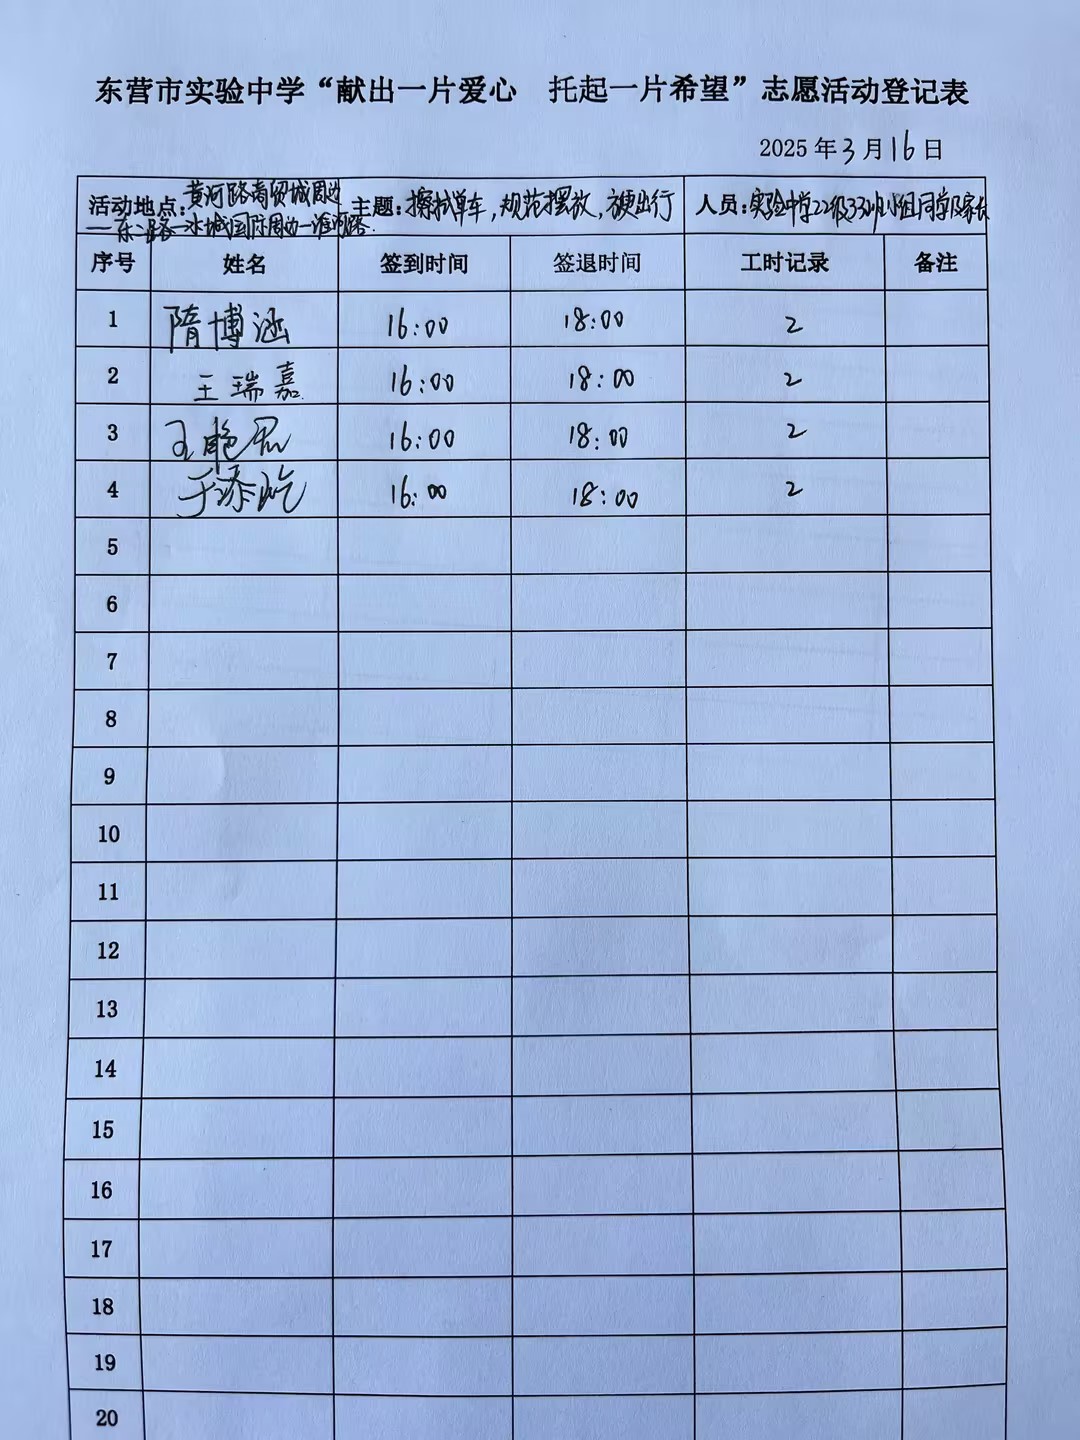 东营市实验中学“献出一片爱心 托起一片希望”志愿活动登记表
2025 年 3 月 16 日
活动地点: 黄河路商贸城周边 主题: 擦拭单车,规范摆放,方便出行 人员: 实验中学22级33班小组同学及家长
一东二路一水城国际周边一淮河路.
序号 姓名 签到时间 签退时间 工时记录 备注
1 隋博涵 16:00 18:00 2
2 王瑞嘉 16:00 18:00 2
3 王艳 16:00 18:00 2
4 于添屹 16:00 18:00 2
5
6
7
8
9
10
11
12
13
14
15
16
17
18
19
20